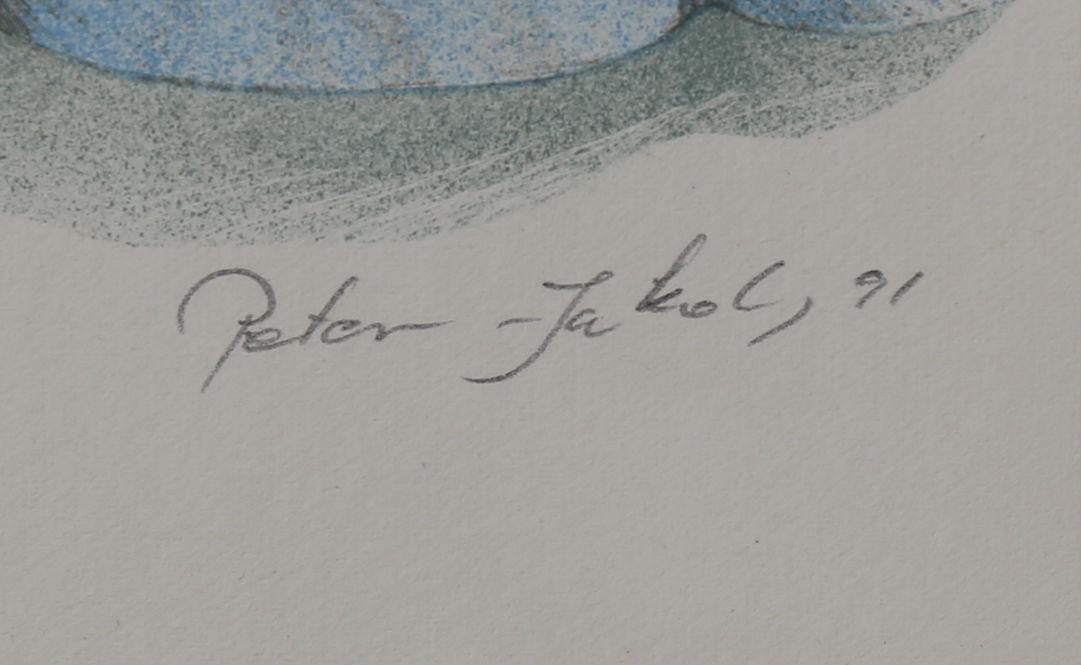 Peter Jakob, 91